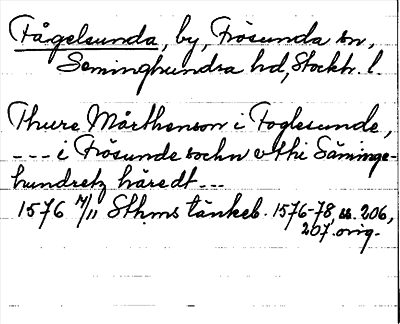 Fågelsunda, by, Frösunda sn,
Seminghundra hd, Stockh. l.
Thure Mårthenson i Foglesunde,
--- i Frösunde sochn vthi Säminge-
hundretz häredt ---
1576 /11 Sthms tänkeb. 1576-78, ss. 206,
207. orig.